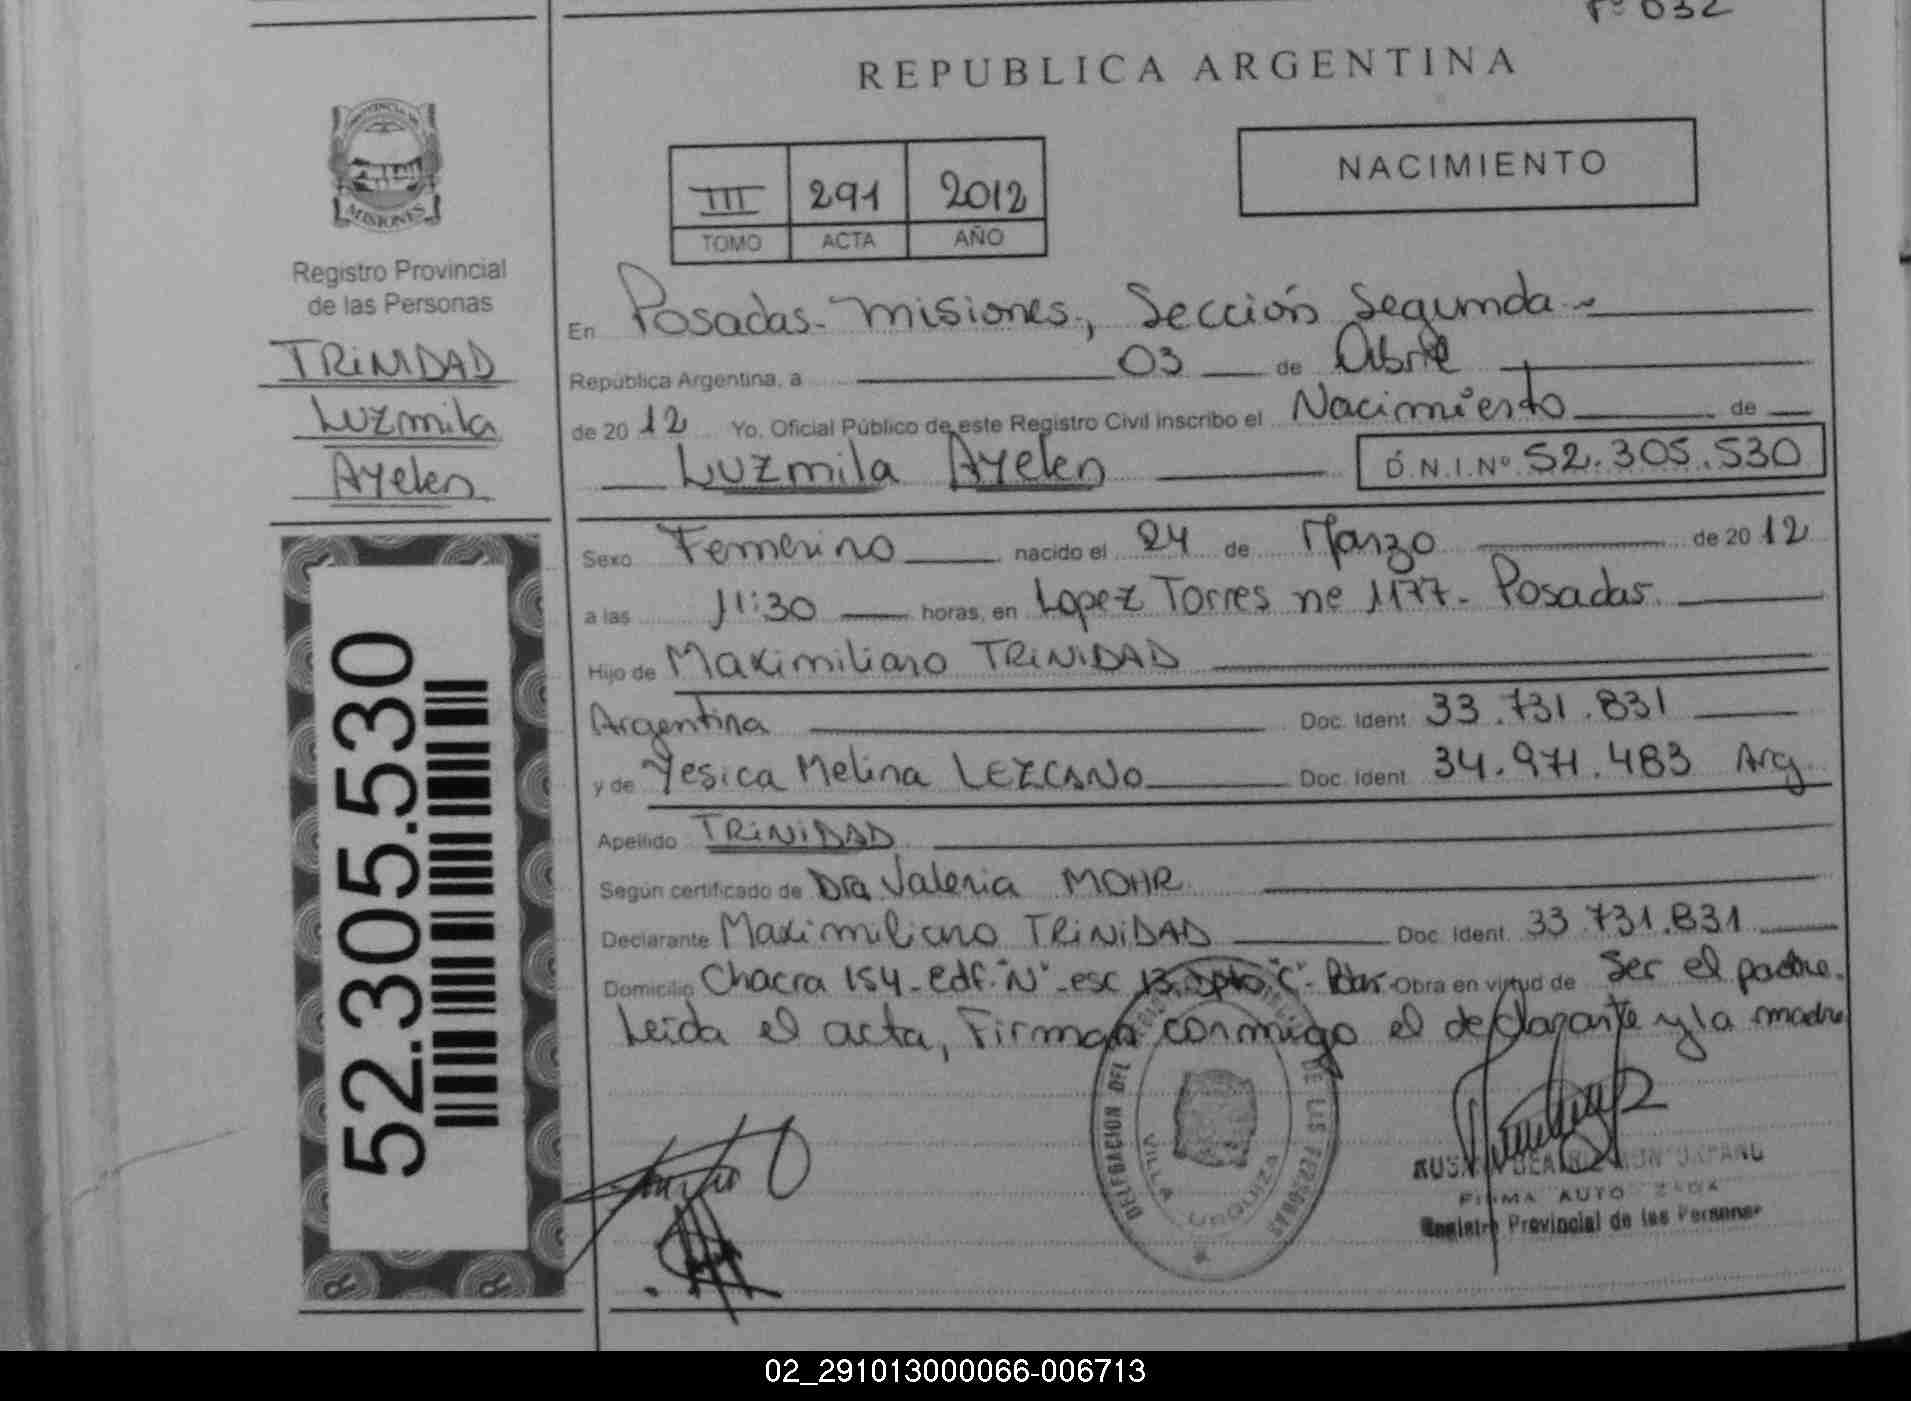 Fº 032
REPUBLICA ARGENTINA
NACIMIENTO
III 291 2012
TOMO ACTA AÑO
PROVINCIA DE
MISIONES
Registro Provincial
de las Personas
TRiNIDAD
Luzmila
Ayelen
52.305.530
En Posadas - Misiones, Sección Segunda
República Argentina, a 03 de Abril
de 2012 Yo, Oficial Público de este Registro Civil inscribo el Nacimiento de
Luzmila Ayelen D.N.I.Nº 52.305.530
Sexo Femenino nacido el 24 de Marzo de 2012
a las 11:30 horas, en Lopez Torres ne 1177 - Posadas.
Hijo de Maximiliano TRiNIDAD
Argentina Doc. Ident. 33.731.831
y de Yesica Melina LEZCANO Doc. Ident. 34.971.483 Arg
Apellido TRiNIDAD
Según certificado de Dra Valeria MOHR
Declarante Maximiliano TRiNIDAD Doc. Ident. 33.731.831
Domicilio Chacra 154 - edf. "N" - esc 13. Dpto "C" - Pdas - Obra en virtud de Ser el padre.
Leida el acta, Firman conmigo el declarante y la madre
DELEGACION DEL DE LAS PERSONAS
VILLA URQUIZA
FIRMA AUTORIZADA
Registro Provincial de las Personas
02_291013000066-006713